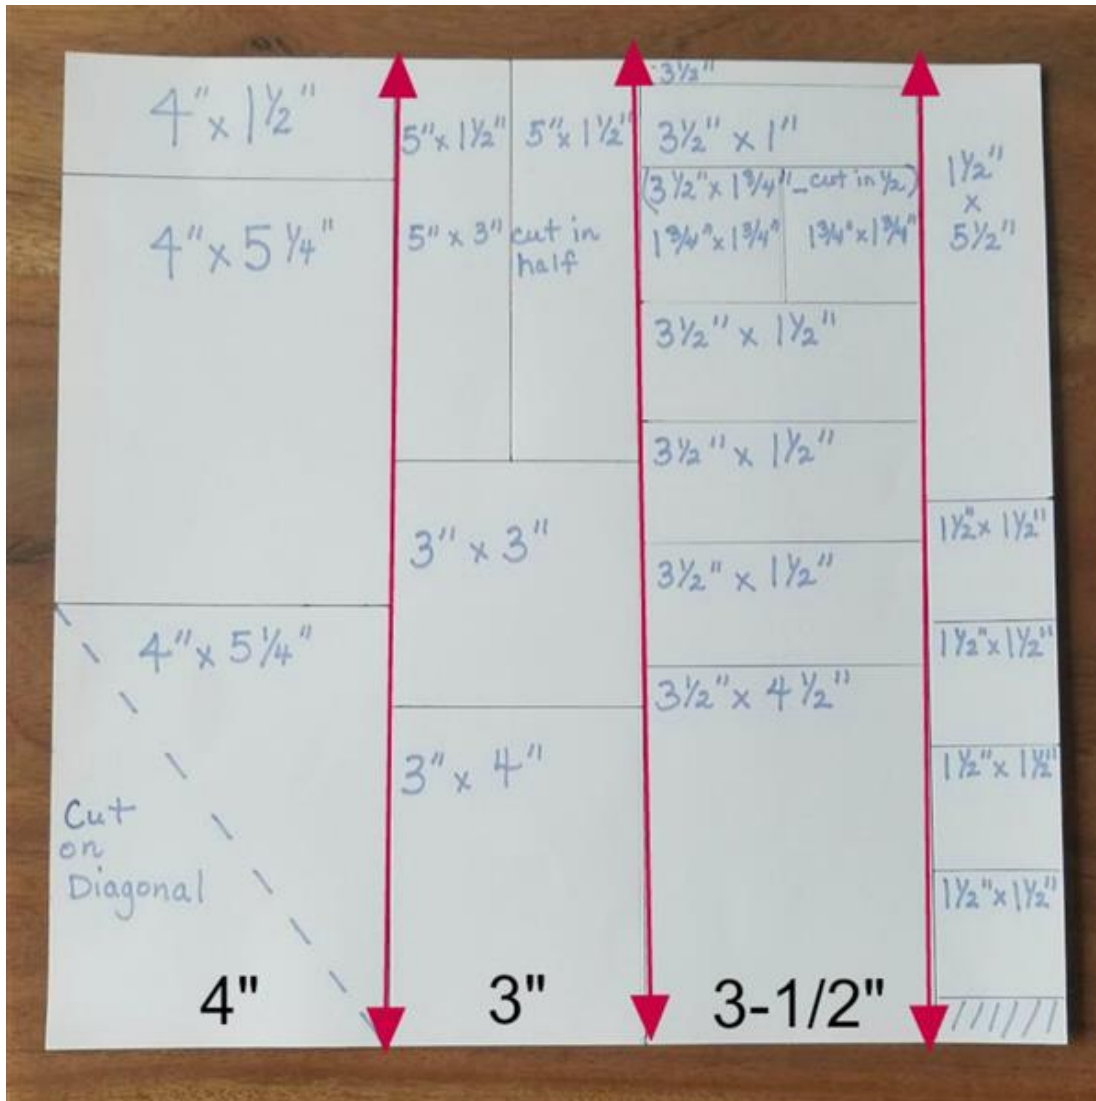 4" x 1½"
4" x 5¼"
4" x 5¼"
Cut
on
Diagonal
4"
5" x 1½" 5" x 1½"
5" x 3" cut in
half
3" x 3"
3" x 4"
3"
3½"
3½" x 1"
(3½" x 1¾" - cut in ½)
1¾" x 1¾" 1¾" x 1¾"
3½" x 1½"
3½" x 1½"
3½" x 1½"
3½" x 4½"
3-1/2"
1½"
x
5½"
1½" x 1½"
1½" x 1½"
1½" x 1½"
1½" x 1½"